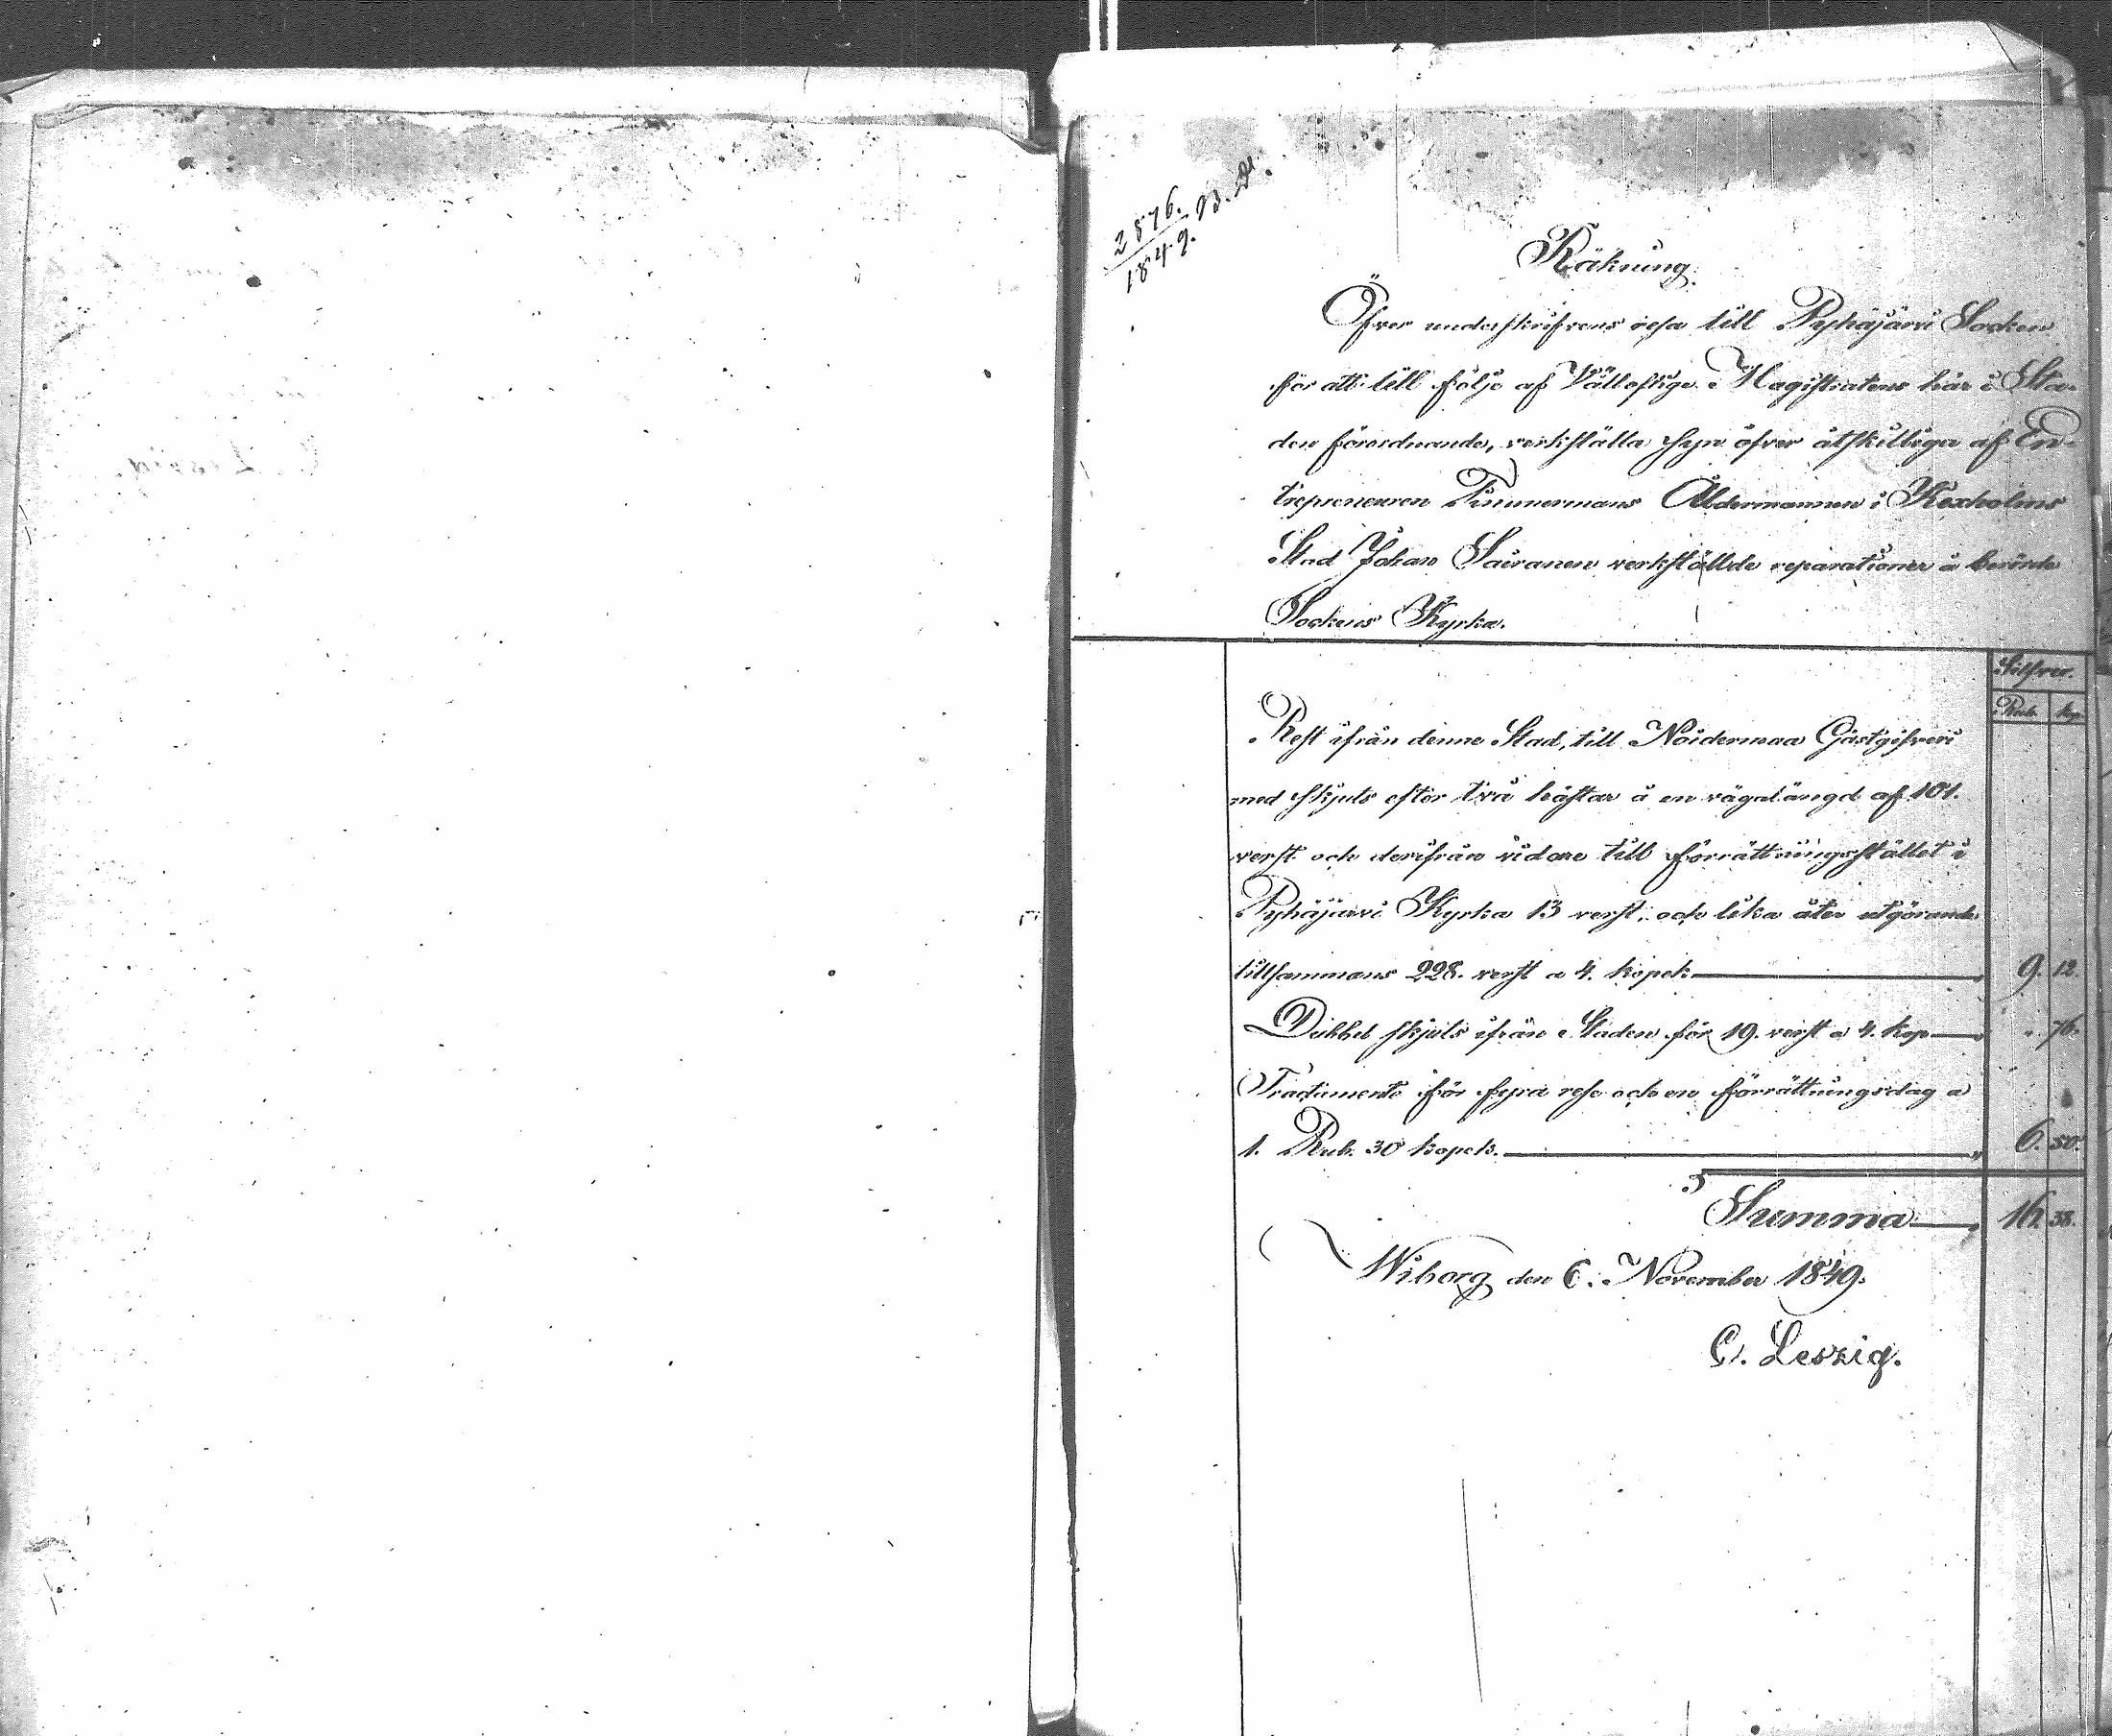 2876.
1849. B. D.
Räkning
Öfver underskrifvens resa till Pyhäjärvi Socken
för att till följe af Vällofliga Magistratens här i Sta-
den förordnande, verkställa syn öfver åtskilliga af En-
trepreneuren Timmermans Åldermannen i Kexholms
Stad Johan Sairanen verkställde reparationer å berörde
Sockens Kyrka.
Silfver.
Rub. kop.
Rest ifrån denne Stad, till Noidermaa Gästgifveri
med skjuts efter två hästar å en vägalängd af 101.
verst och derifrån vidare till förrättningsstället i
Pyhäjärvi Kyrka 13 verst, och lika åter utgörande
tillsammans 228. verst a 4. kopek 9. 12.
Dubbel skjuts ifrån Staden för 19. verst a 4. kop " 76.
Tractamente för fyra rese och en förrättningsdag a
1. Rub. 30 kopek. 6. 50.
Summa 16. 38.
Wiborg den 6. November 1849.
C. Leszig.